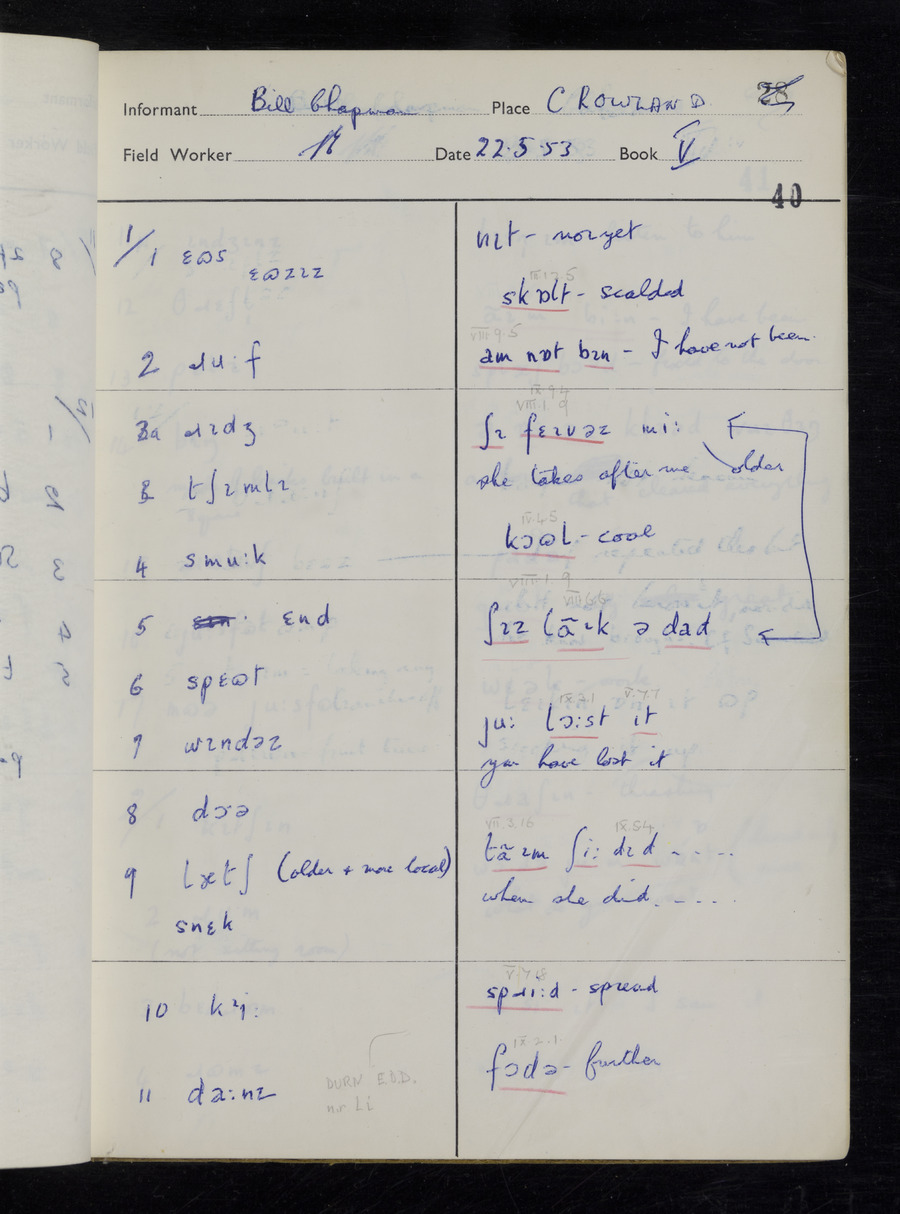 Informant Bill Chapman Place CROWLAND 28
Field Worker Date 22.5.53 Book V
40
1/1 ɛɷs
ɛɷzɪz
2 ɹu:f
3a ɹɪdʒ
3 tʃɪmlɪ
4 smu:k
5 ɛnd
6 spɛɷt
7 wɪndəz
8 dɔə
9 (older + more local)
snɛk
10 ki:
11 də:nz
DURN E.D.D.
n.r Li
nɪt - not yet
III.12.5
skɒlt - scalded
VIII.9.5
am nɒt bɪn - I have not been.
IX.9.4
VIII.1.9
ʃɪ fɛɪvəz mi:
she takes after me older
IV.4.5
kɔɷl - cool
VIII.1.9
VIII.6.6
ʃɪz lãɪk ə dad
IX.3.1 V.7.7
ju: lɔ:st it
you have lost it
VII.3.16 IX.5.4
tãɪm ʃi: dɪd ....
when she did. ....
V.7.8
spɹi:d - spread
IX.2.1
fɔdə - further